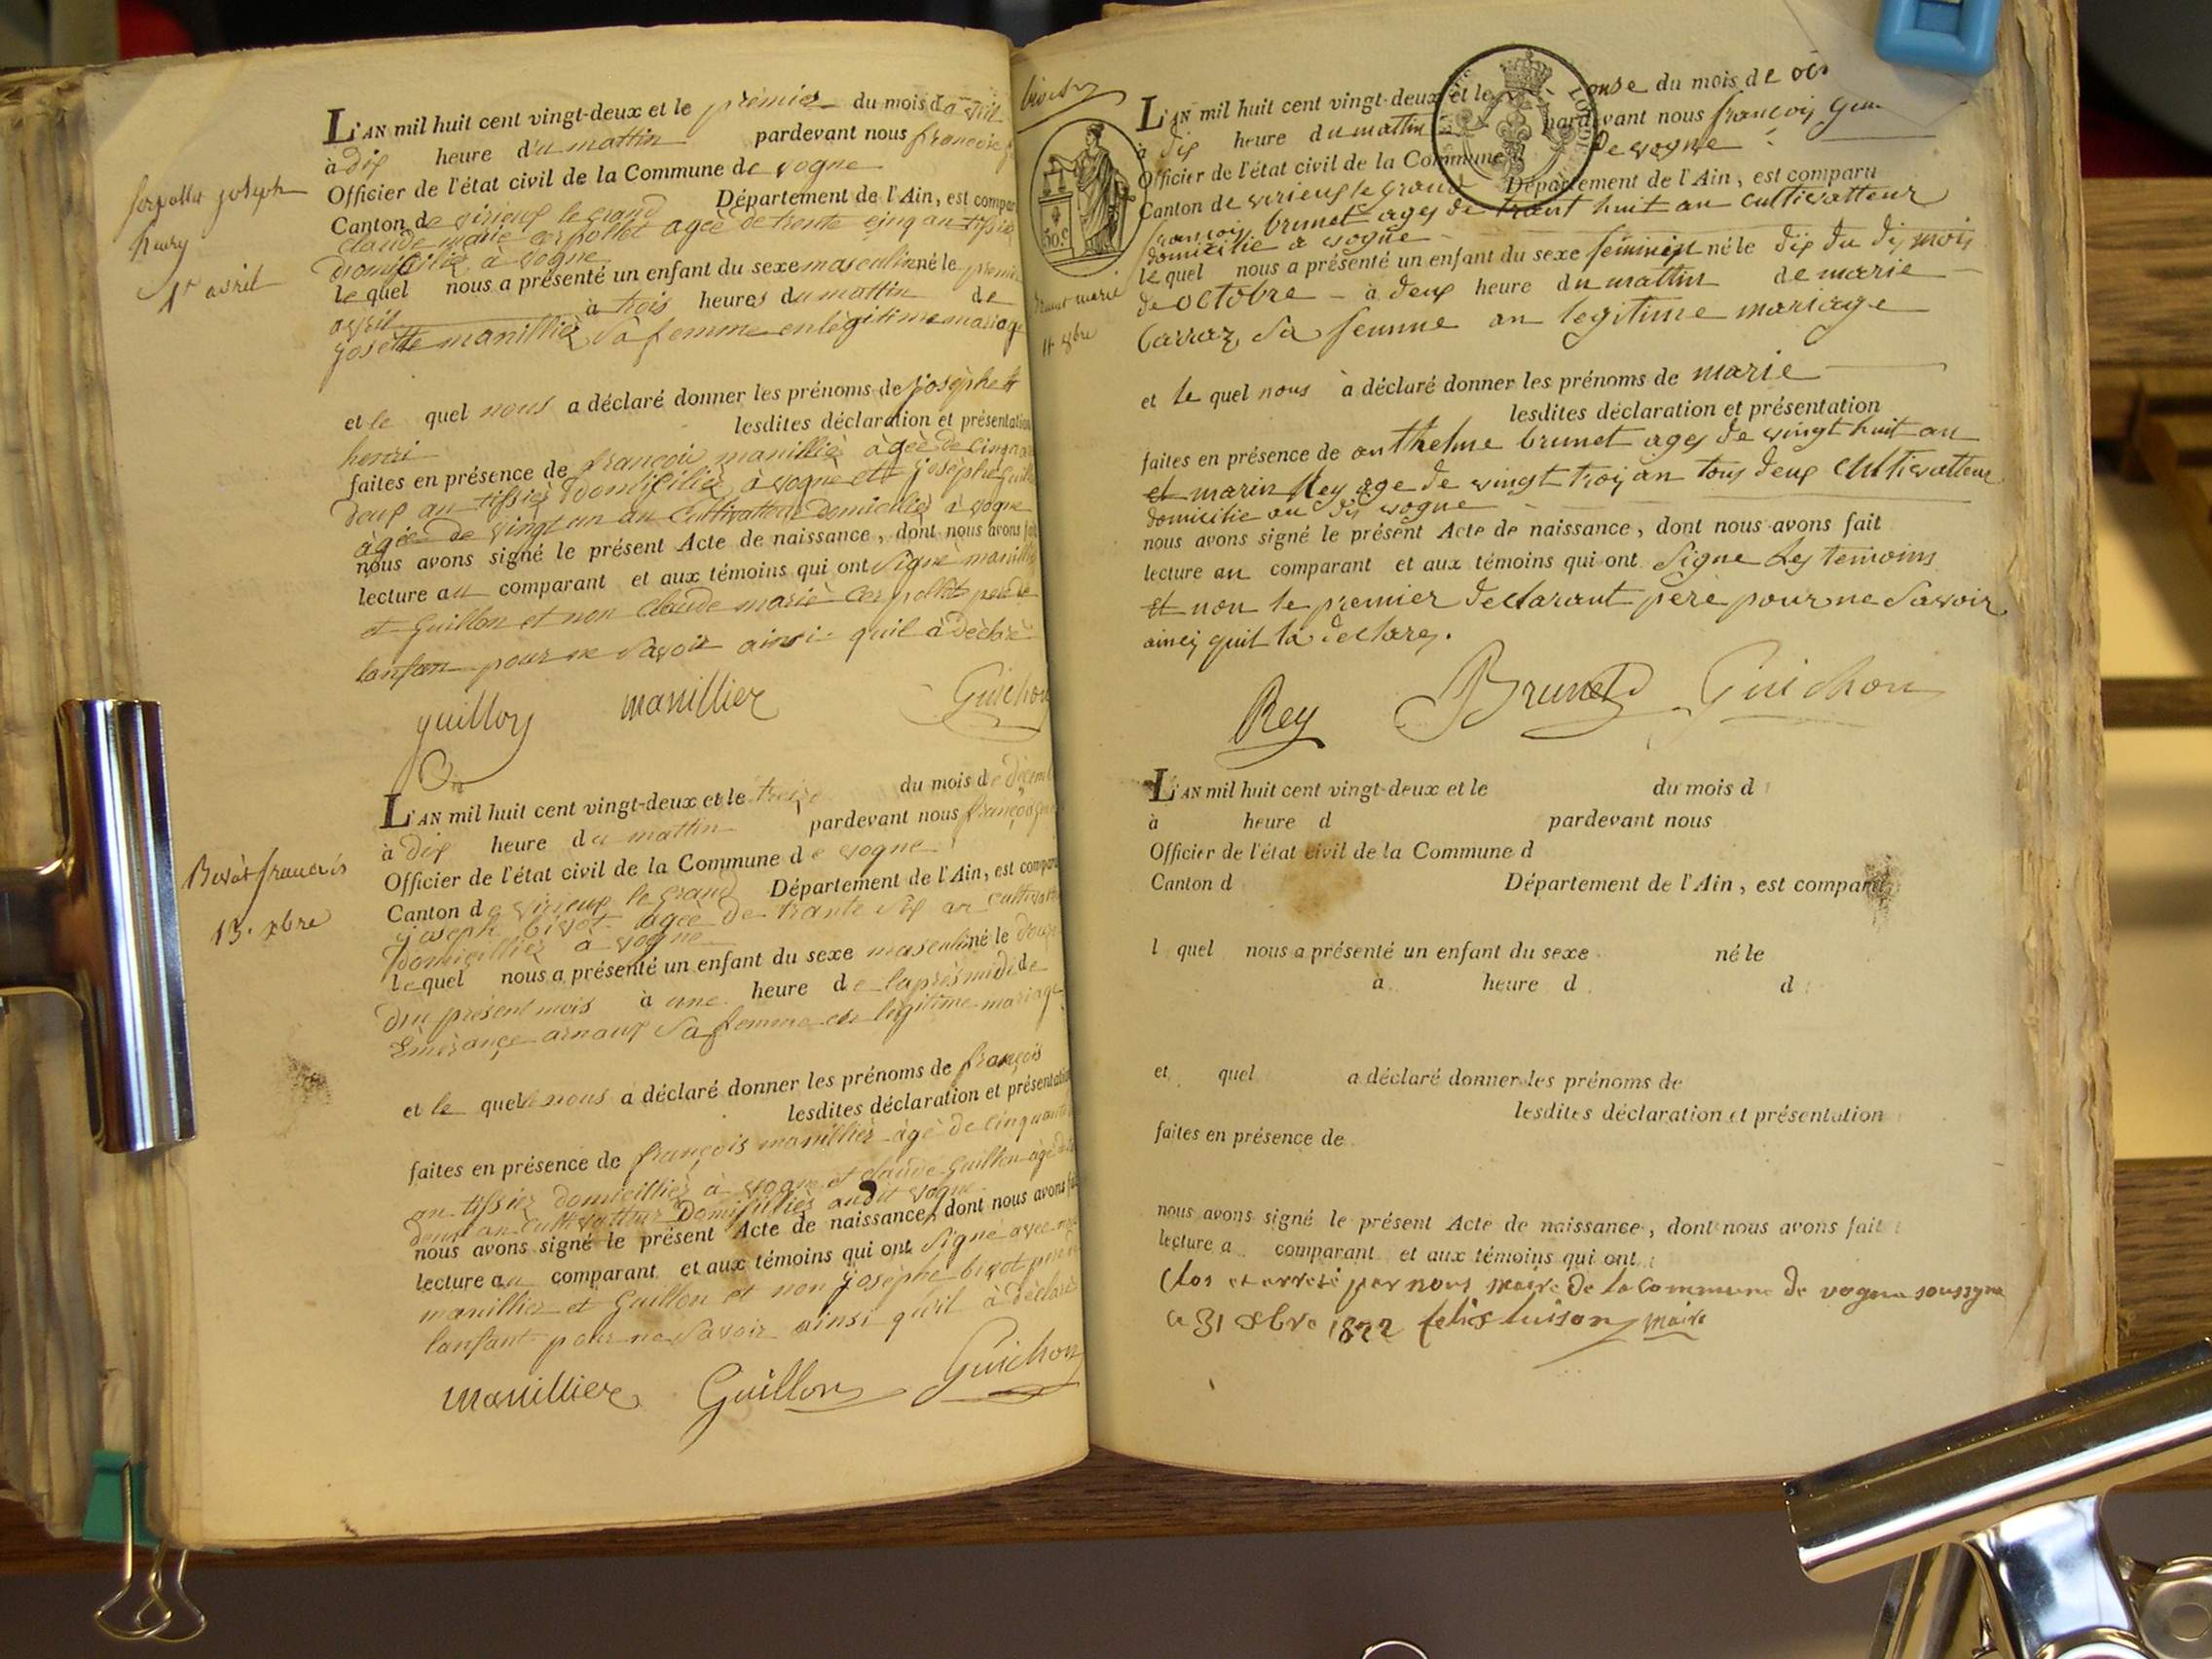 L'AN mil huit cent vingt-deux et le premier du mois d'avril
à dix heure du mattin pardevant nous françois
Officier de l'état civil de la Commune de vogne
Canton de virieux le grand Département de l'Ain, est compar
claude marie cerpollet agèe de trente cinq an tissier
domicilié à vogne
le quel nous a présenté un enfant du sexe masculin né le premier
avril à trois heures du mattin de
josette manillier sa femme en lègitime mariage
et le quel nous a déclaré donner les prénoms de josèphe
lesdites déclaration et présentation
henri
faites en présence de françois manillier àgèe de cinqua
deux an tissier domicilié à vogne et josèphe guillon
àgèe de vingt un an cultivatteur domicilié à vogne
nous avons signé le présent Acte de naissance, dont nous avons fait
lecture au comparant et aux témoins qui ont signé manillier
et Guillon et non claude marie cerpollet père de
lanfan pour ne savoir ainsi quil à dèclarè
guillon manillier Guichon
serpollet joseph
henry
1er avril
L'AN mil huit cent vingt-deux et le treize du mois de dècemb
à dix heure du mattin pardevant nous françois
Officier de l'état civil de la Commune de vogne
Canton de virieux le grand Département de l'Ain, est compar
joseph bivot agèe de trante six an cultivat
domicillié à vogne
le quel nous a présenté un enfant du sexe masculin né le douze
du présent mois à une heure de laprèsmidi de
Emèrançe arnaux sa femme en legitime mariage
et le quel nous a déclaré donner les prénoms de françois
lesdites déclaration et présentation
faites en présence de françois manillier àgè de cinquante
an tissier domicillié à vogne et claude Guillon àgè
an cultivatteur Domicilliés audit vogne
nous avons signé le présent Acte de naissance, dont nous avons fait
lecture au comparant et aux témoins qui ont signé avec
manillier et Guillon et non josèphe bivot père de
lanfant pour ne savoir ainsi qu'il à dèclarè
manillier Guillon Guichon
Bivot francois
13. xbre
L'AN mil huit cent vingt-deux et le onse du mois de oc
à dix heure du mattin pardevant nous françois
Officier de l'état civil de la Commune de vogne
Canton de virieux le grand Département de l'Ain, est comparu
françois brunet ages de trant huit an cultivatteur
domicilie a vogne
le quel nous a présenté un enfant du sexe féminin né le dix du dis mois
de octobre à deux heure du mattin de marie
Carraz sa femme an legitime mariage
et le quel nous à déclaré donner les prénoms de marie
lesdites déclaration et présentation
faites en présence de anthelme brunet ages de vingt huit an
et marin Rey age de vingt troy an tous deux cultivatteur
domicilie au dis vogne
nous avons signé le présent Acte de naissance, dont nous avons fait
lecture au comparant et aux témoins qui ont signe les temoins
et non le premier declarant père pour ne savoir
ainsi quil la declarez.
Rey Brunet Guichon
Brunet marie
11 8bre
L'AN mil huit cent vingt-deux et le du mois d
à heure d pardevant nous
Officier de l'état civil de la Commune d
Canton d Département de l'Ain, est comparu
l quel nous a présenté un enfant du sexe né le
à heure d d
et quel a déclaré donner les prénoms de
lesdites déclaration et présentation
faites en présence de
nous avons signé le présent Acte de naissance, dont nous avons fait
lecture a comparant et aux témoins qui ont
Clos et arreté par nous maire de la commune de vogne soussigne
le 31 xbre 1822 felix luison maire